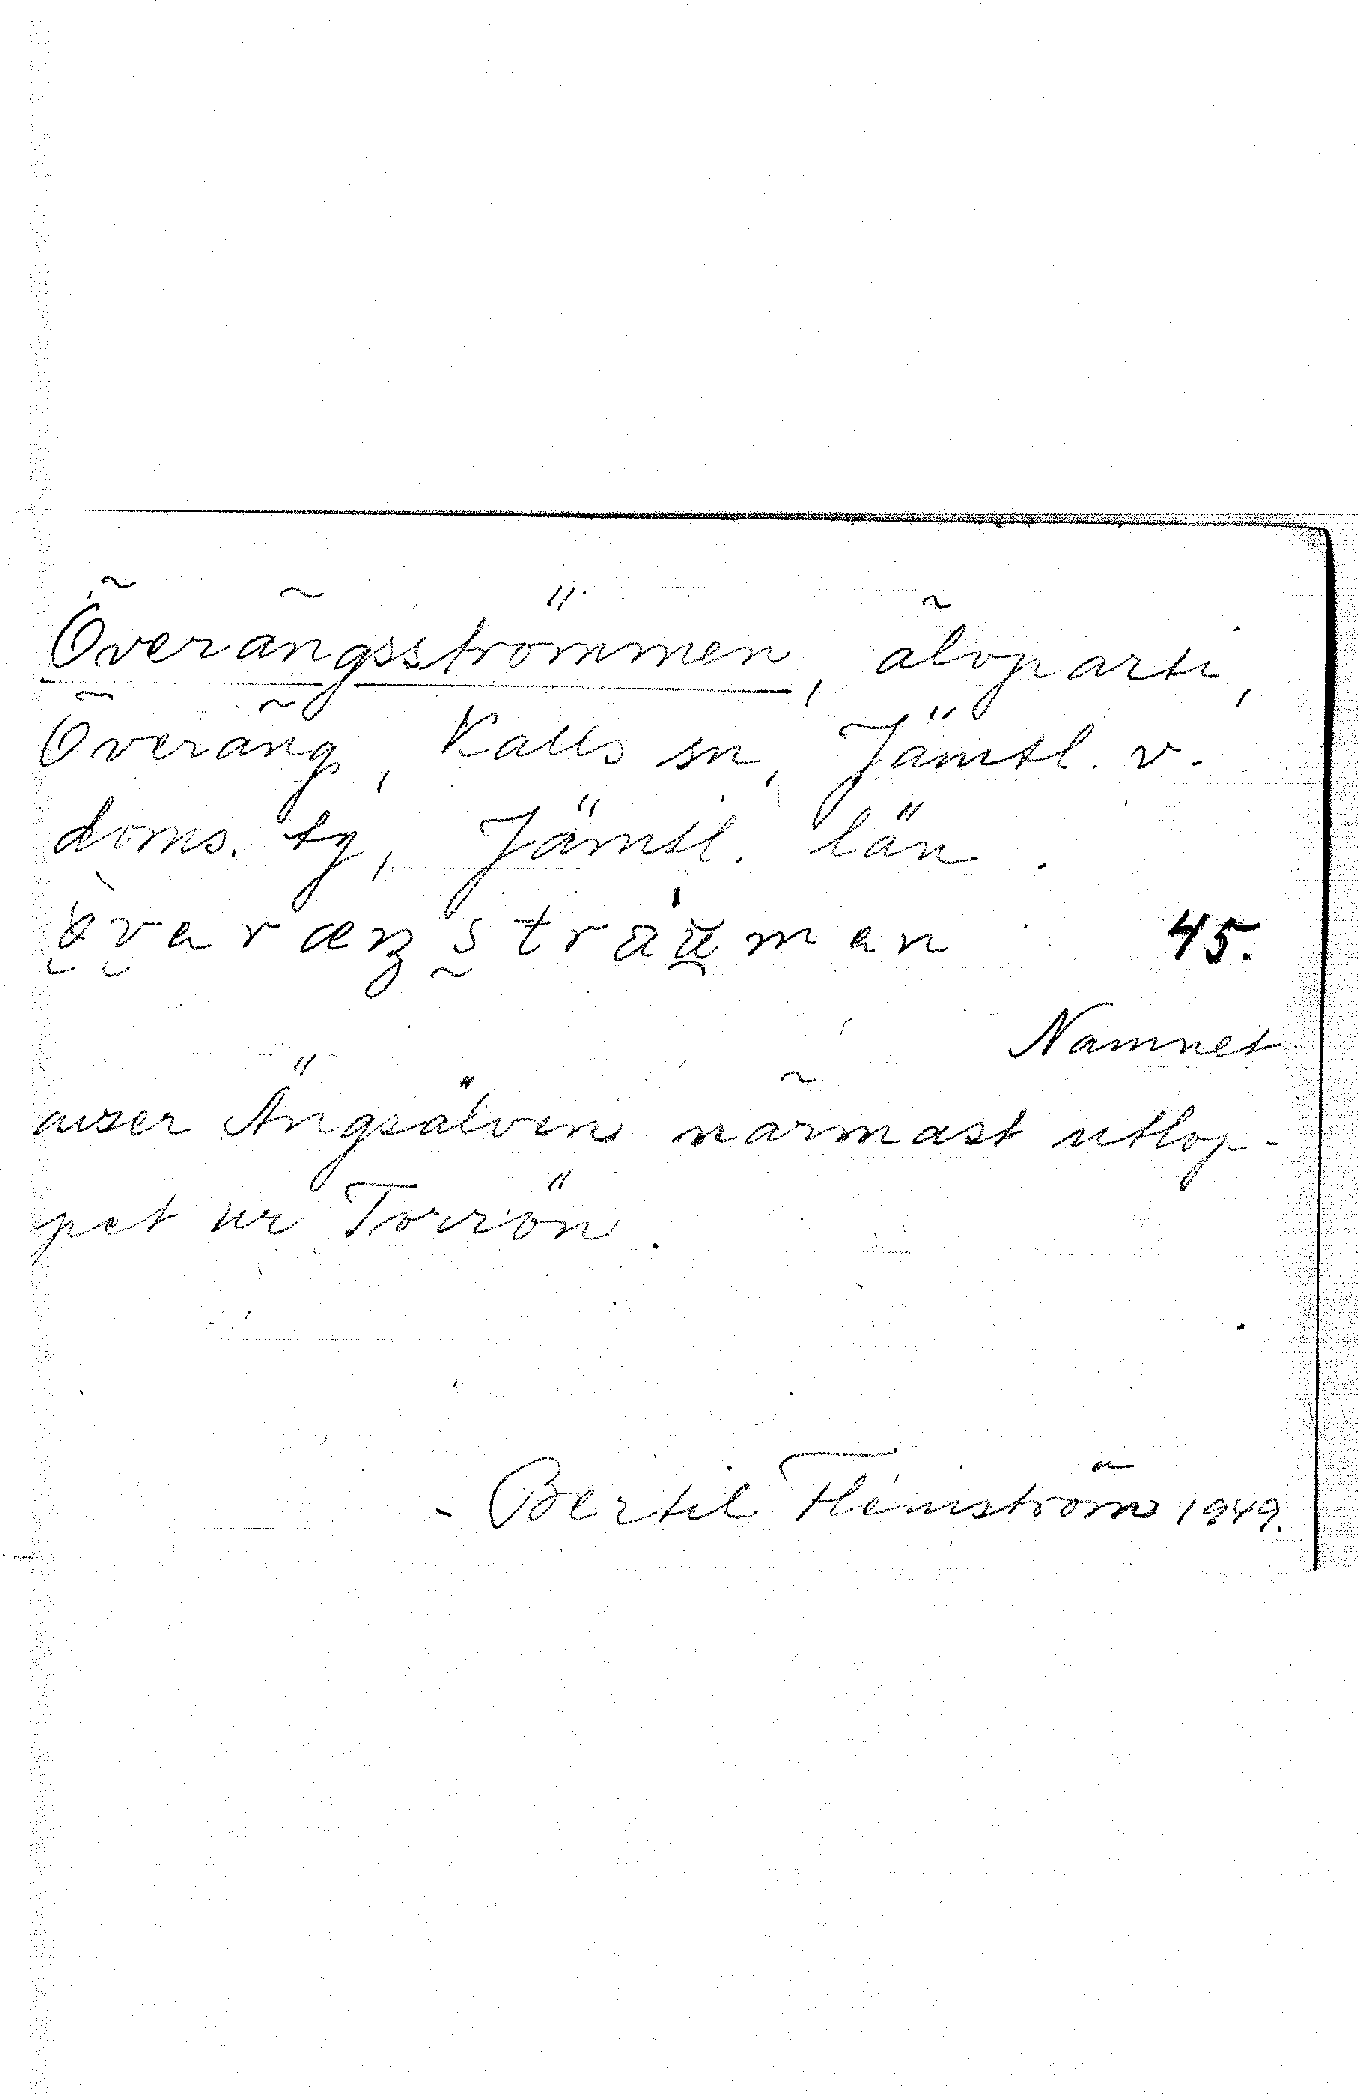 Överängsströmmen, älvparti,
Överäng, Kalls sn, Jämtl. v.
doms. tg, Jämtl. län.
45.
Namnet
avser Ängsälven närmast utlop-
pet ur Torrön.
- Bertil Flemström 1949.